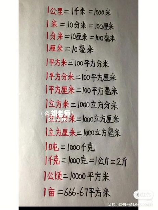 1公里=1千米=1000米
1米=10分米=100厘米
1分米=10厘米=100毫米
1厘米=10毫米
1平方米=100平方分米
1平方分米=100平方厘米
1平方厘米=100平方毫米
1立方米=1000立方分米
1立方分米=1000立方厘米
1立方厘米=1000立方毫米
1吨=1000千克
1千克=1000克=1公斤=2斤
1公顷=10000平方米
1亩=666.67平方米